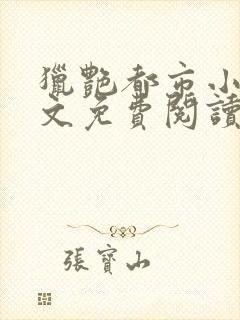 獵艷都市小
文免費閱讀
張寶山